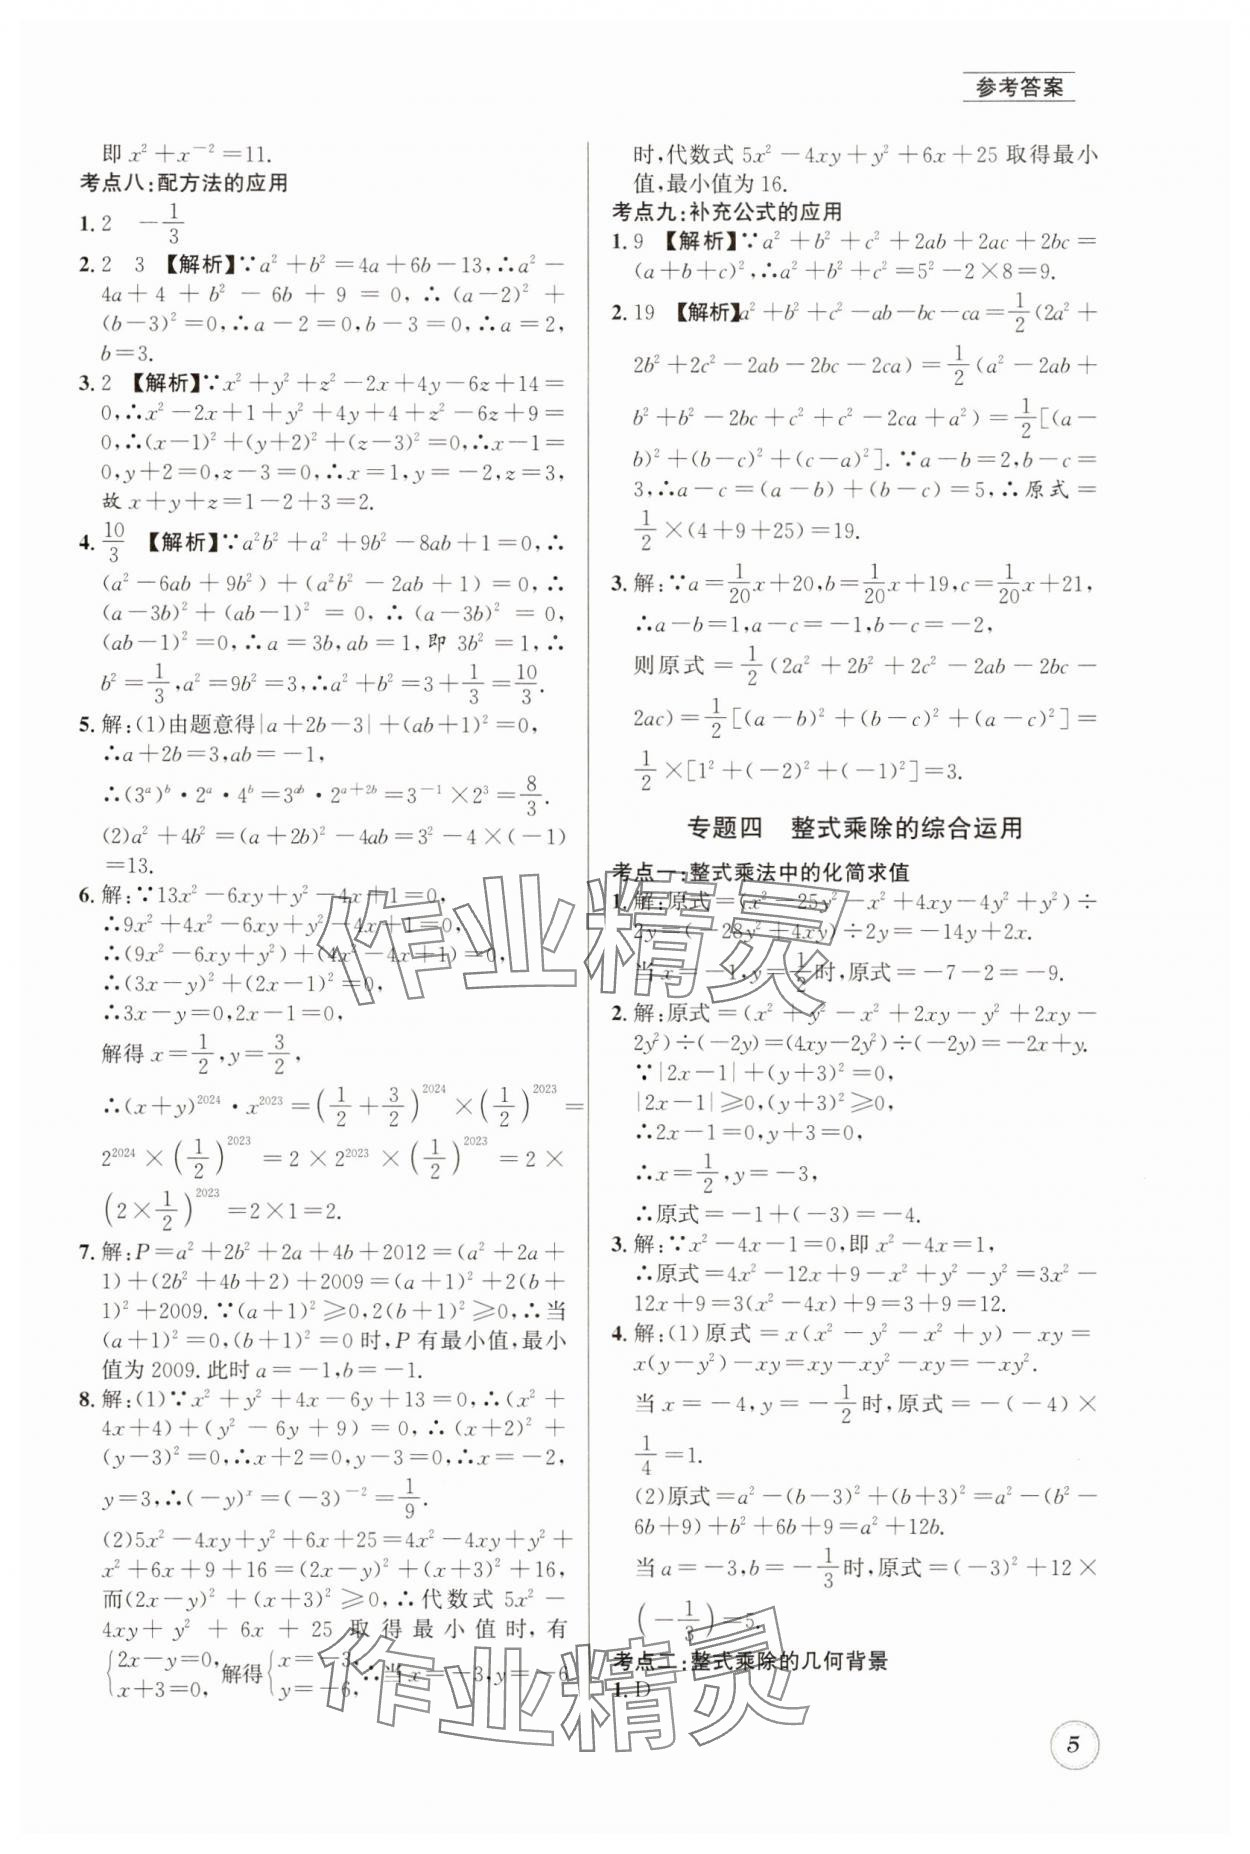 参考答案
即 x²+x⁻²=11.
考点八:配方法的应用
1. 2  −1/3
2. 2  3 【解析】∵a²+b²=4a+6b−13,∴a²−
4a+4+b²−6b+9=0,∴(a−2)²+
(b−3)²=0,∴a−2=0,b−3=0,∴a=2,
b=3.
3. 2 【解析】∵x²+y²+z²−2x+4y−6z+14=
0,∴x²−2x+1+y²+4y+4+z²−6z+9=
0,∴(x−1)²+(y+2)²+(z−3)²=0,∴x−1=
0,y+2=0,z−3=0,∴x=1,y=−2,z=3,
故 x+y+z=1−2+3=2.
4. 10/3 【解析】∵a²b²+a²+9b²−8ab+1=0,∴
(a²−6ab+9b²)+(a²b²−2ab+1)=0,∴
(a−3b)²+(ab−1)²=0,∴(a−3b)²=0,
(ab−1)²=0,∴a=3b,ab=1,即 3b²=1,∴
b²=1/3,a²=9b²=3,∴a²+b²=3+1/3=10/3.
5. 解:(1)由题意得|a+2b−3|+(ab+1)²=0,
∴a+2b=3,ab=−1,
∴(3ᵃ)ᵇ·2ᵃ·4ᵇ=3ᵃᵇ·2ᵃ⁺²ᵇ=3⁻¹×2³=8/3.
(2)a²+4b²=(a+2b)²−4ab=3²−4×(−1)
=13.
6. 解:∵13x²−6xy+y²−4x+1=0,
∴9x²+4x²−6xy+y²−4x+1=0,
∴(9x²−6xy+y²)+(4x²−4x+1)=0,
∴(3x−y)²+(2x−1)²=0,
∴3x−y=0,2x−1=0,
解得 x=1/2,y=3/2,
∴(x+y)²⁰²⁴·x²⁰²³=(1/2+3/2)²⁰²⁴×(1/2)²⁰²³=
2²⁰²⁴×(1/2)²⁰²³=2×2²⁰²³×(1/2)²⁰²³=2×
(2×1/2)²⁰²³=2×1=2.
7. 解:P=a²+2b²+2a+4b+2012=(a²+2a+
1)+(2b²+4b+2)+2009=(a+1)²+2(b+
1)²+2009.∵(a+1)²≥0,2(b+1)²≥0,∴当
(a+1)²=0,(b+1)²=0时,P有最小值,最小
值为2009.此时a=−1,b=−1.
8. 解:(1)∵x²+y²+4x−6y+13=0,∴(x²+
4x+4)+(y²−6y+9)=0,∴(x+2)²+
(y−3)²=0,∴x+2=0,y−3=0,∴x=−2,
y=3,∴(−y)ˣ=(−3)⁻²=1/9.
(2)5x²−4xy+y²+6x+25=4x²−4xy+y²+
x²+6x+9+16=(2x−y)²+(x+3)²+16,
而(2x−y)²+(x+3)²≥0,∴代数式 5x²−
4xy+y²+6x+25 取得最小值时,有
{2x−y=0, x+3=0, 解得{x=−3, y=−6, ∴当x=−3,y=−6
时,代数式 5x²−4xy+y²+6x+25 取得最小
值,最小值为16.
考点九:补充公式的应用
1. 9 【解析】∵a²+b²+c²+2ab+2ac+2bc=
(a+b+c)²,∴a²+b²+c²=5²−2×8=9.
2. 19 【解析】a²+b²+c²−ab−bc−ca=1/2(2a²+
2b²+2c²−2ab−2bc−2ca)=1/2(a²−2ab+
b²+b²−2bc+c²+c²−2ca+a²)=1/2[(a−
b)²+(b−c)²+(c−a)²].∵a−b=2,b−c=
3,∴a−c=(a−b)+(b−c)=5,∴原式=
1/2×(4+9+25)=19.
3. 解:∵a=1/20x+20,b=1/20x+19,c=1/20x+21,
∴a−b=1,a−c=−1,b−c=−2,
则原式=1/2(2a²+2b²+2c²−2ab−2bc−
2ac)=1/2[(a−b)²+(b−c)²+(a−c)²]=
1/2×[1²+(−2)²+(−1)²]=3.
专题四 整式乘除的综合运用
考点一:整式乘法中的化简求值
1. 解:原式=(x²−25y²−x²+4xy−4y²+y²)÷
2y=(−28y²+4xy)÷2y=−14y+2x.
当x=−1,y=1/2时,原式=−7−2=−9.
2. 解:原式=(x²+y²−x²+2xy−y²+2xy−
2y²)÷(−2y)=(4xy−2y²)÷(−2y)=−2x+y.
∵|2x−1|+(y+3)²=0,
|2x−1|≥0,(y+3)²≥0,
∴2x−1=0,y+3=0,
∴x=1/2,y=−3,
∴原式=−1+(−3)=−4.
3. 解:∵x²−4x−1=0,即 x²−4x=1,
∴原式=4x²−12x+9−x²+y²−y²=3x²−
12x+9=3(x²−4x)+9=3+9=12.
4. 解:(1)原式=x(x²−y²−x²+y)−xy=
x(y−y²)−xy=xy−xy²−xy=−xy².
当x=−4,y=−1/2时,原式=−(−4)×
1/4=1.
(2)原式=a²−(b−3)²+(b+3)²=a²−(b²−
6b+9)+b²+6b+9=a²+12b.
当a=−3,b=−1/3时,原式=(−3)²+12×
(−1/3)=5.
考点二:整式乘除的几何背景
1. D
作业精灵
作业精灵
5